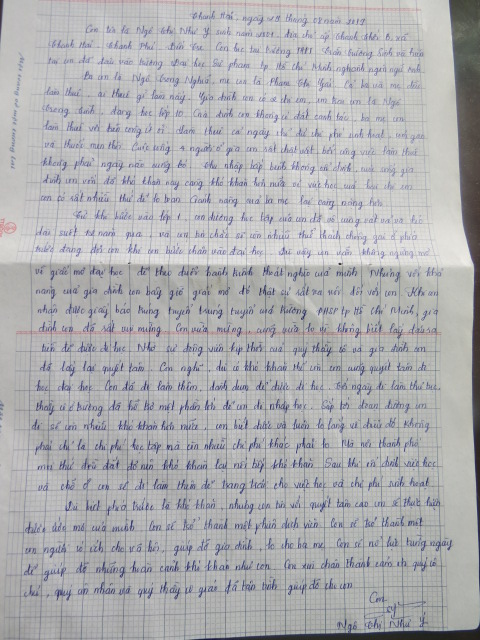 Thạnh Hải, ngày 29 tháng 08 năm 2019
Con tên là Ngô Thị Như Ý sinh năm 2001, địa chỉ ấp Thạnh Thới B, xã
Thạnh Hải - Thạnh Phú - Bến Tre. Con học tại trường THPT Trần Trường Sinh và hiện
tại con đã đậu vào trường Đại học Sư phạm tp Hồ Chí Minh nghành ngôn ngữ Anh
Ba con là Ngô Trọng Nghĩa, mẹ con là Phạm Thị Gái. Cả ba và mẹ đều
làm thuê, ai thuê gì làm nấy. Gia đình con có 4 chị em, em trai con là Ngô
Trọng Tính, đang học lớp 10. Nhà con không có đất canh tác, ba mẹ con
làm thuê với tiền công ít ỏi làm thuê cả ngày chỉ đủ chi phí sinh hoạt, với gạo
và thuốc men thôi. Cuộc sống 4 người ở gia con rất chật vật, bởi công việc làm thuê
không phải ngày nào cũng có. Thu nhập bấp bênh không ổn định, nên cuộc sống gia
đình con vốn đã khó khăn nay càng khó khăn hơn nữa vì việc học của hai chị em
con có rất nhiều thứ để lo toan. Gánh nặng của ba mẹ lại càng nặng hơn
Từ khi bước vào lớp 1, con đường học tập của con đã vô cùng vất vả và kéo
dài suốt 12 năm qua, và con tin chắc sẽ còn nhiều thử thách chông gai ở phía
trước đang đợi con khi con bước chân vào đại học. Dù vậy con vẫn không ngừng mơ
về giấc mơ đại học để theo đuổi hành trình thoát nghèo của mình. Nhưng với khả
năng của gia đình con bây giờ giấc mơ đó thật sự rất xa vời đối với con. Khi con
nhận được giấy báo trúng tuyển trúng tuyển của trường ĐHSP tp Hồ Chí Minh, gia
đình con đã rất vui mừng. Con vừa mừng, cũng vừa lo vì không biết lấy đâu ra
tiền để được đi học. Nhờ sự động viên kịp thời của quý thầy cô và gia đình con
đã lấy lại quyết tâm. Con nghĩ, dù có khó khăn thế nào con cũng quyết tâm đi
học đại học. Con đã đi làm thêm, dành dụm để được đi học. Tới ngày đi làm thủ tục,
thầy cô trường đã hỗ trợ một phần lớn để con đi nhập học. Sắp tới đoạn đường con
đi sẽ còn nhiều khó khăn hơn nữa, con biết được và luôn lo lắng về điều đó. Không
phải chỉ là chi phí học tập mà còn nhiều chi phí khác phải lo. Mà nơi thành phố
mọi thứ đều đắt đỏ nên khó khăn lại nối tiếp khó khăn. Sau khi ổn định việc học
và chỗ ở con sẽ đi làm thêm để trang trải cho việc học và chi phí sinh hoạt.
Dù biết phía trước là khó khăn, nhưng con tin với quyết tâm con sẽ thực hiện
được ước mơ của mình. Con sẽ trở thành một phiên dịch viên. Con sẽ trở thành một
con người có ích cho xã hội, giúp đỡ gia đình, lo cho ba mẹ. Con sẽ nỗ lực từng ngày
để giúp đỡ những hoàn cảnh khó khăn như con. Con xin chân thành cảm ơn quý cô
chú, quý ân nhân và quý thầy cô giáo đã tận tình giúp đỡ cho con
Con
Ý
Ngô Thị Như Ý